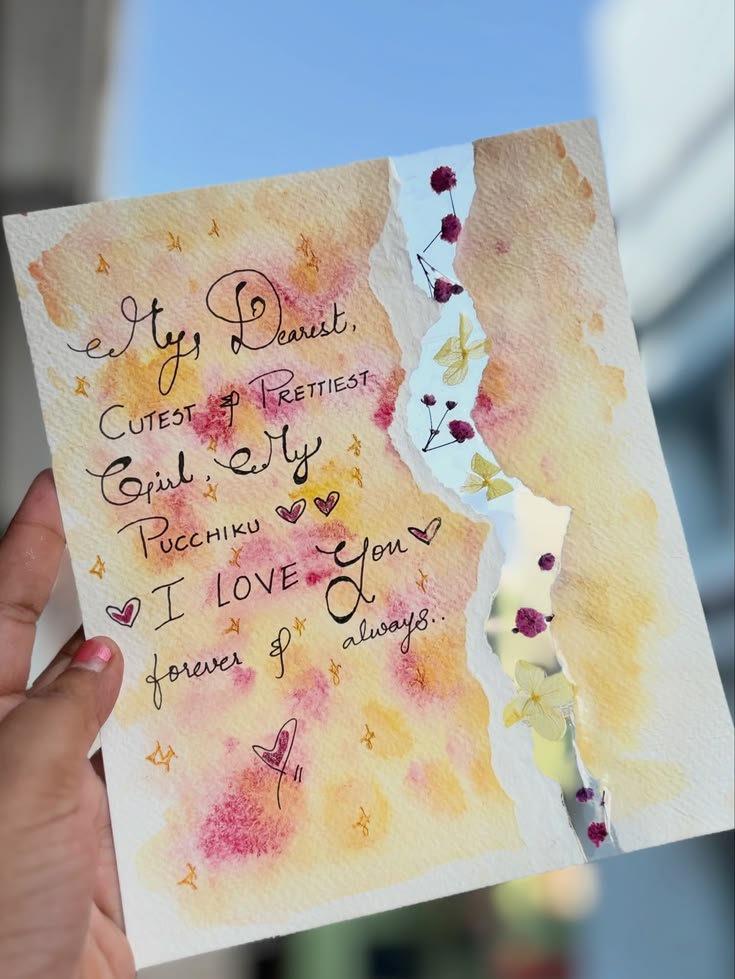 My Dearest,
CUTEST & PRETTIEST
Girl, My
PUCCHIKU
I LOVE You
forever & always..